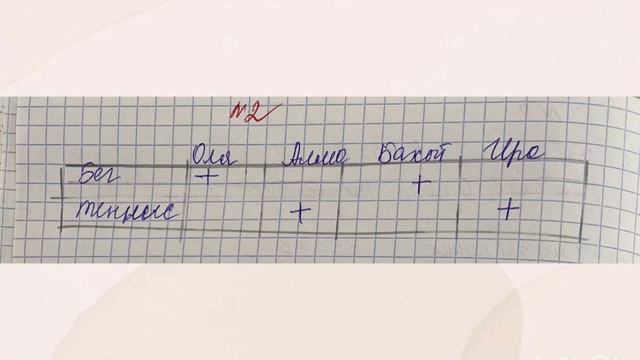 №2
Оля Алма Бахыт Ира
Бег + +
теннис + +